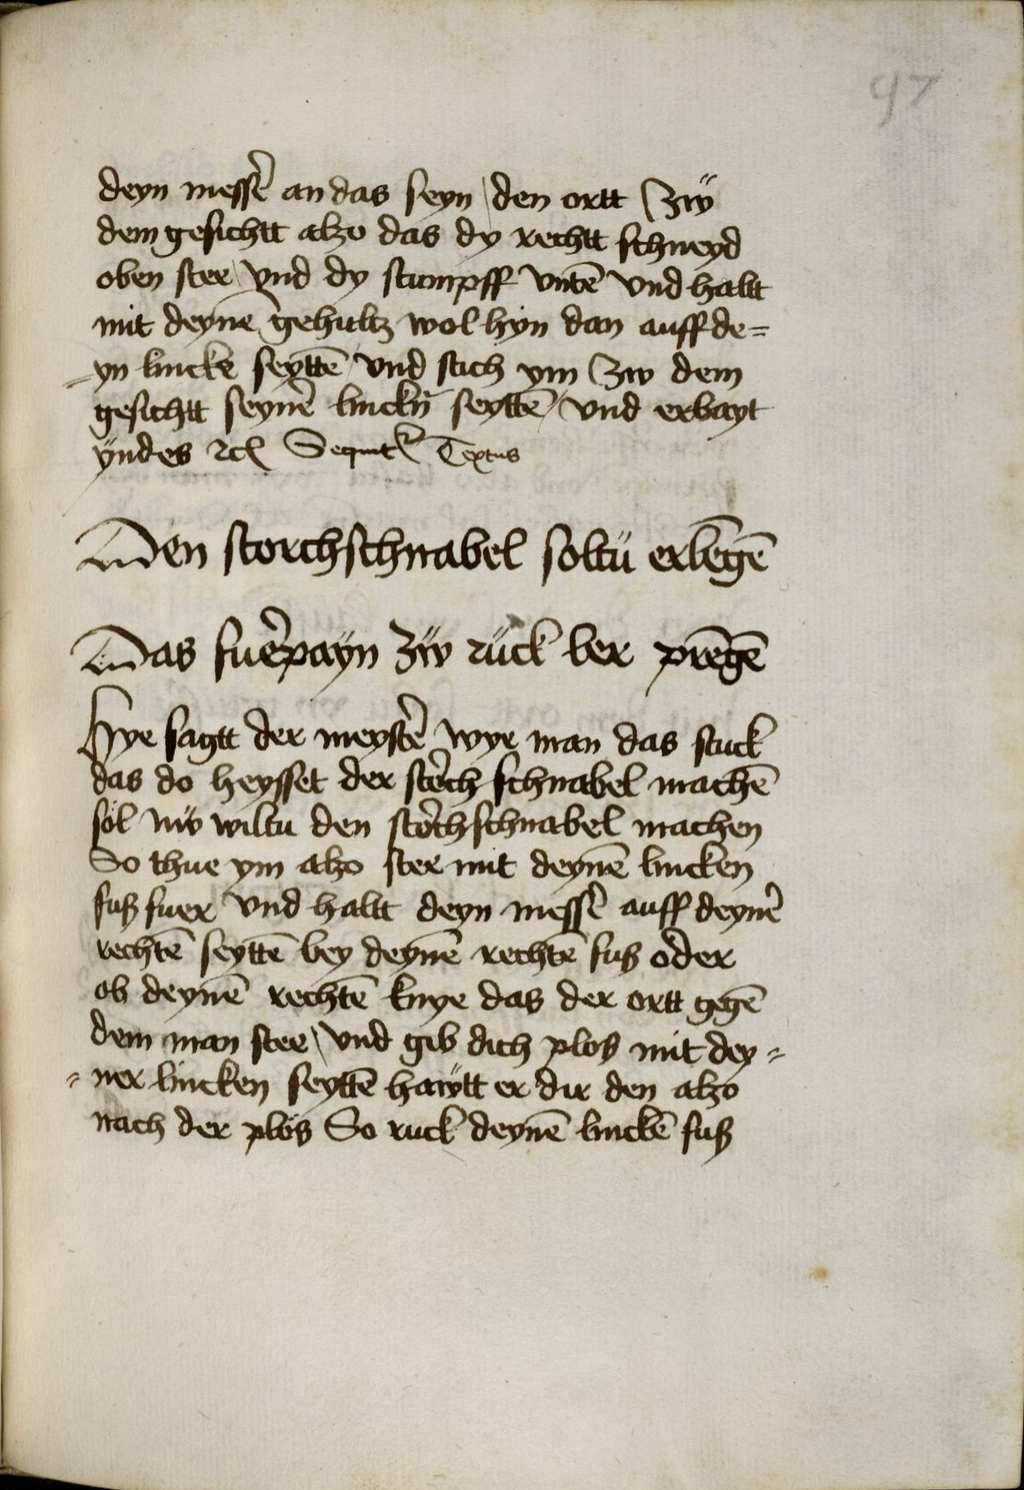 47
deyn messer̄ an das seyn / den ortt Zẅ
dem gesichtt alzo das dy rechtt schneyd
oben stee / vnd dy stumpff vntē vnd haltt
mit deynē gehultz wol hyn dan auff de=
-yn lincke seyttē / vnd stich ym Zw dem
gesichtt seynē linckn̄ seyttē / vnd erbayt
yndes ⁊c̄ Sequit᷑ Textus
Den storchschnabel soltü erlēgē
Das fuer̄payn zẅ rück ver prēgē
Hye sagtt der meyster̄ wye man das stuck
das do heysset der storch schnabel machē
söl nẅ wiltu den storchschnabel machen
So thue ym alzo stee mit deynē lincken
fuß fuer vnd haltt deyn messer̄ auff deyner̄
rechtē seyttē bey deynē rechtē fuß oder
ob deynē rechtē knye das der ortt gegē
dem man stee / vnd gib dich plos mit dey=
=ner lincken seyttē haẅtt er dir den alzo
nach der plös So ruck deynē linckē fuß